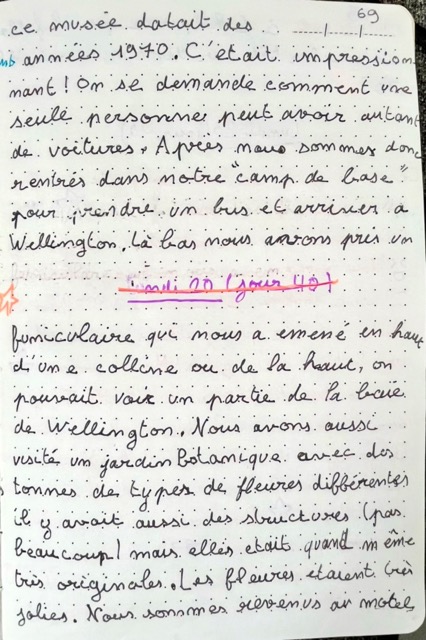 69
ce musée datait des
années 1970. C'était impression
nant! On se demande comment une
seule personne peut avoir autant
de voitures. Après nous sommes donc
rentrés dans notre "camp de base"
pour prendre un bus et arriver a
Wellington. Là bas nous avons pris un
lundi 20 (jour 40)
funiculaire qui nous a emené en haut
d'une colline ou de la haut, on
pouvait voir un partie de la baie
de Wellington. Nous avons aussi
visité un jardin Botanique avec des
tonnes de types de fleures différentes
il y avait aussi des structures (pas
beaucoup) mais elles etait quand même
très originales. Les fleures étaient très
jolies. Nous sommes revenus au motel